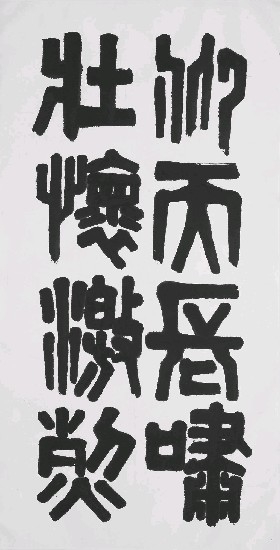 仰天長嘯
壯懷激烈